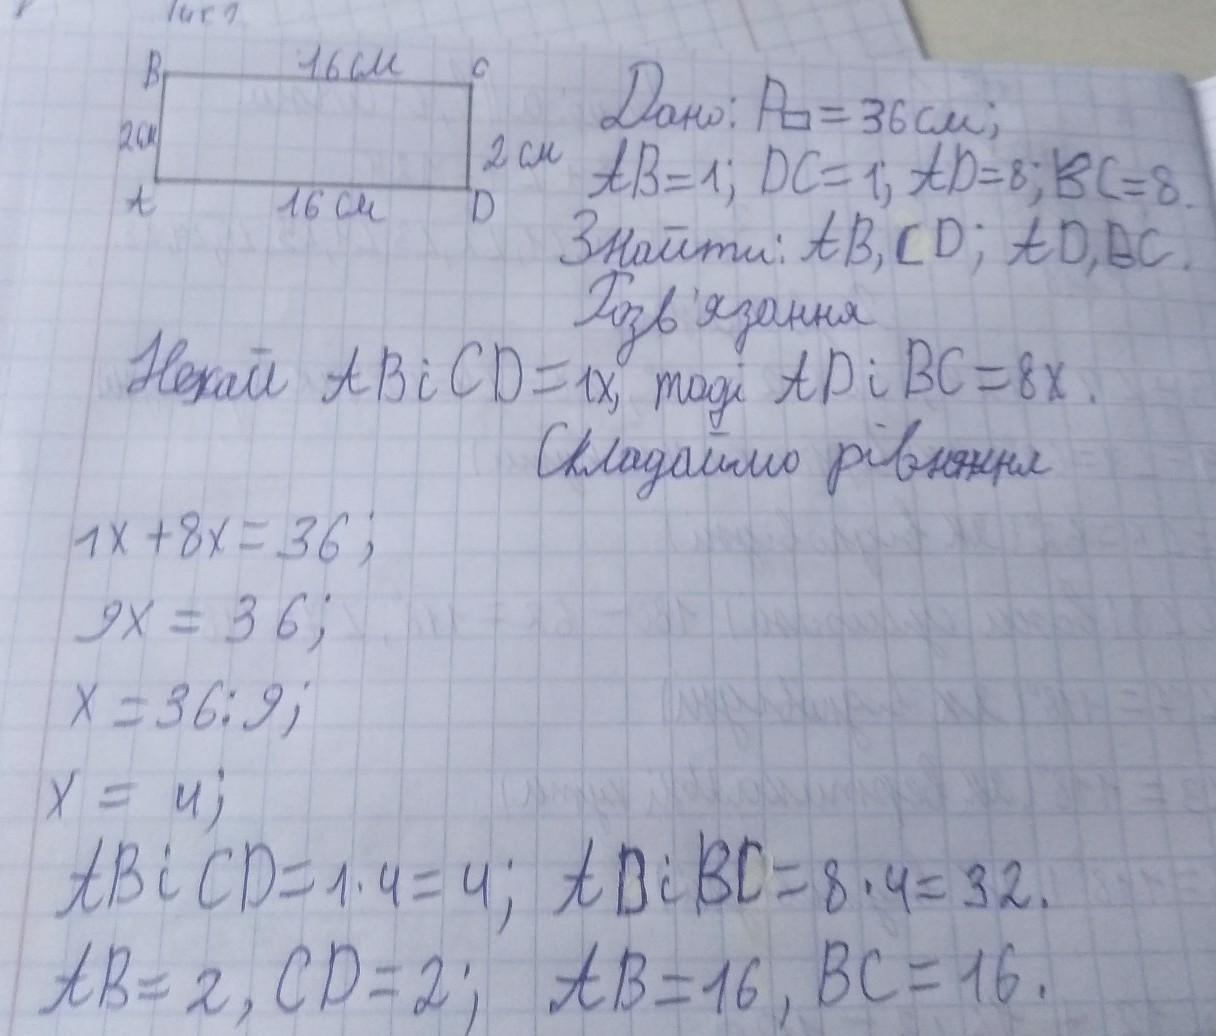 B 16 см C
2см
2 см
A 16 см D
Дано: P▭ = 36 см;
AB=1; DC=1; AD=8; BC=8.
Знайти: AB, CD; AD, BC.
Розв'язання
Нехай AB i CD=1x, тоді AD i BC=8x.
Складаймо рівняння
1x+8x=36;
9x = 36;
x = 36:9;
x = 4;
AB i CD=1·4=4; AD i BC=8·4=32.
AB=2, CD=2; AB=16, BC=16.